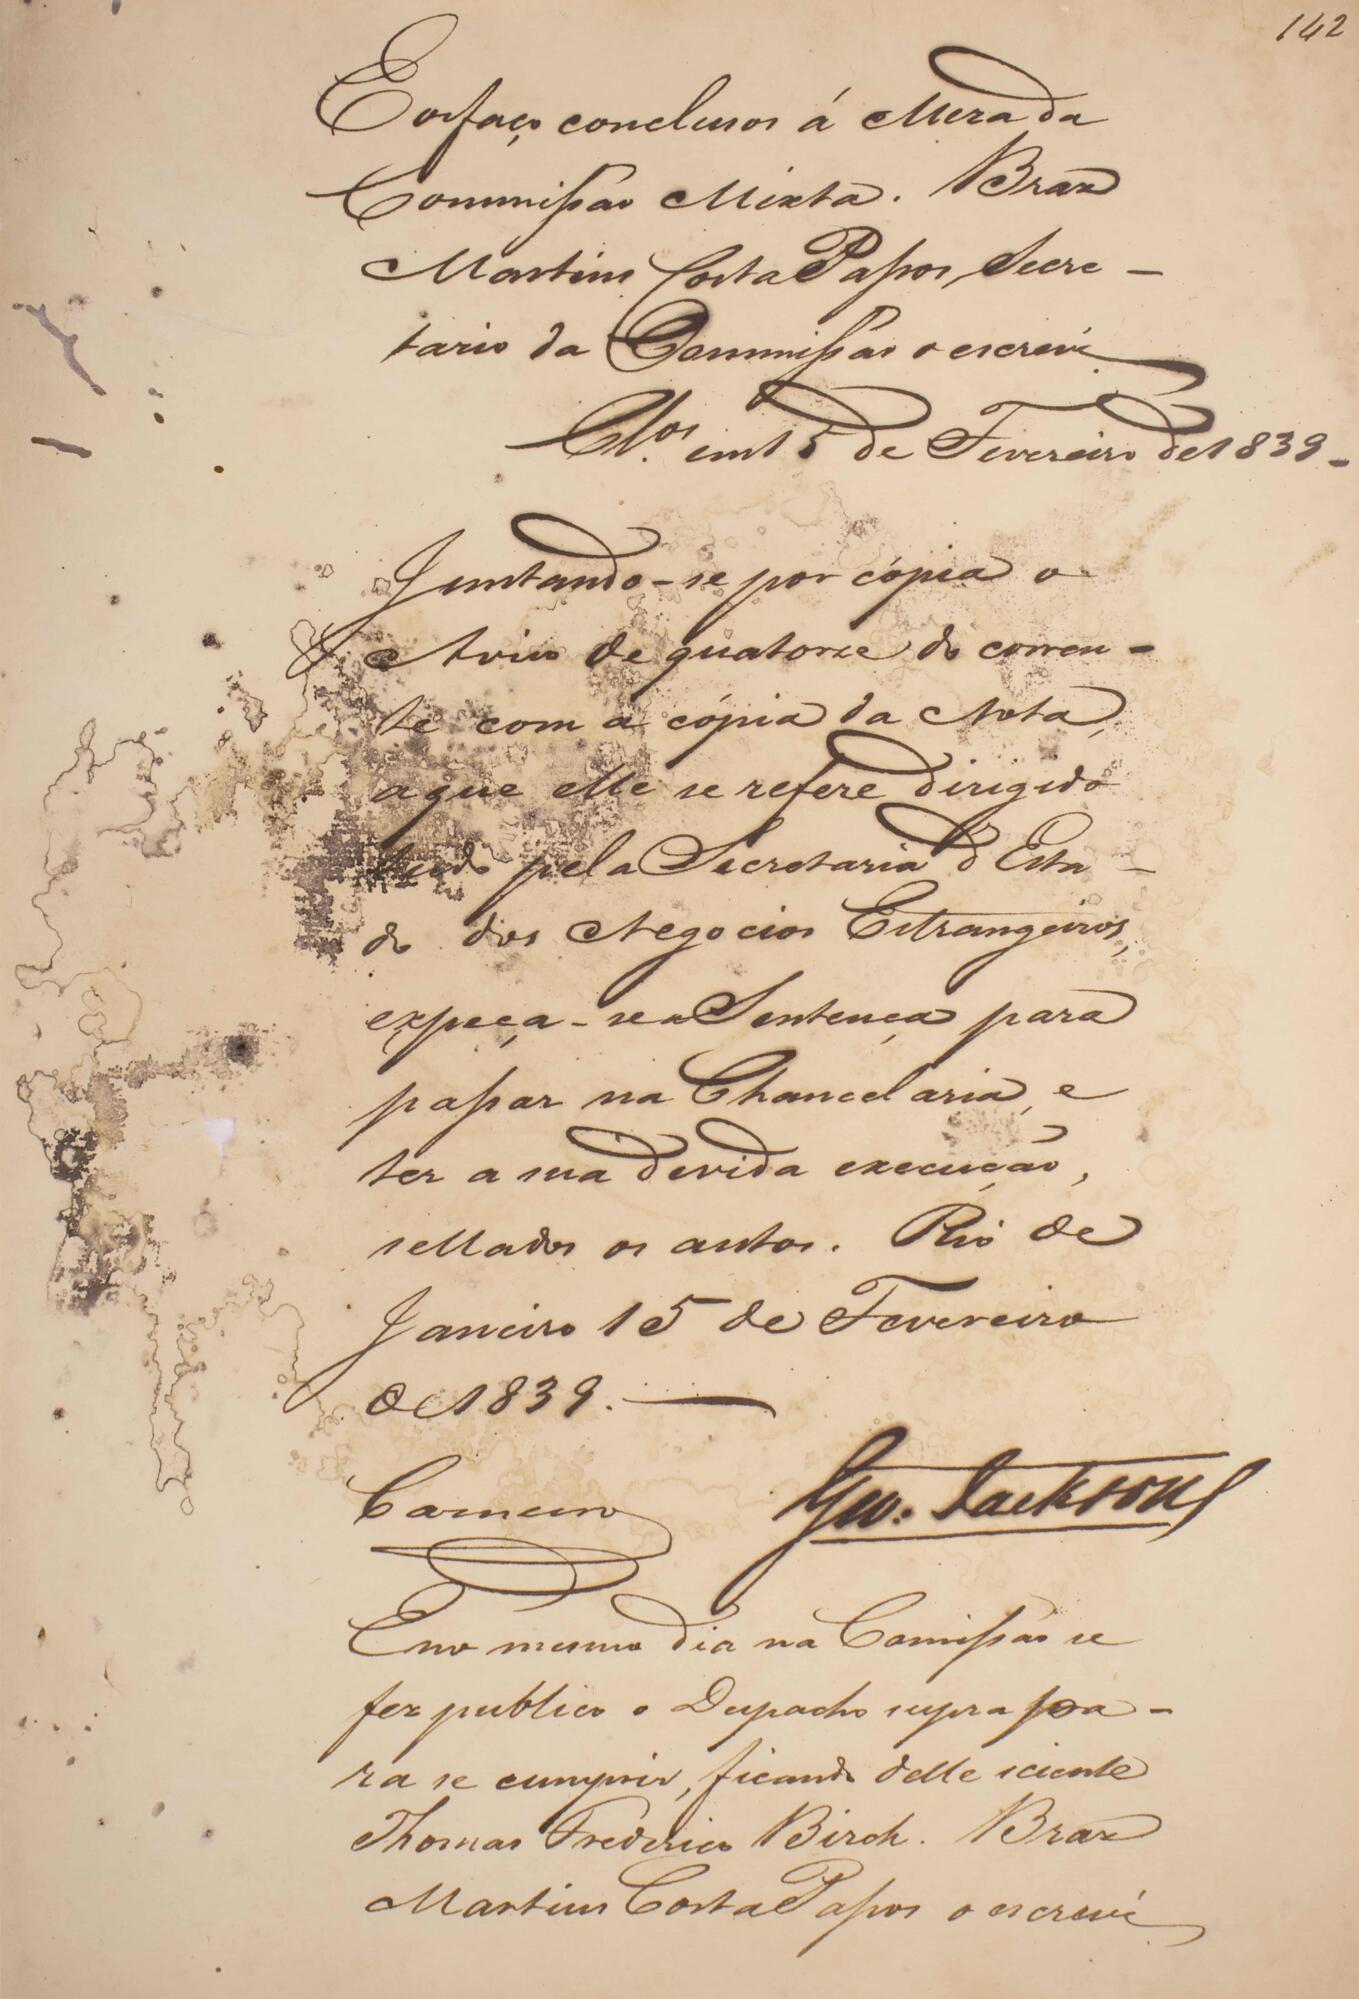 142
E os faço conclusos á Meza da
Commissão Mixta. Braz
Martins Costa Passos, Secre-
tario da Commissão o escreví
Cl.os em 15 de Fevereiro de 1839-
Juntando-se por cópia o
Aviso de quatorze do corren-
te com a cópia da Nota,
a que elle se refere dirigido
tudo pela Secretaria d'Esta-
do dos Negocios Estrangeiros,
expeça-se a Sentença para
passar na Chancelaria, e
ter a sua devida execução,
sellados os autos. Rio de
Janeiro 15 de Fevereiro
de 1839.
Carneiro Geo: Jackson
E no mesmo dia na Comissão se
fez publico o Despacho supra pa-
ra se cumprir, ficando delle sciente
Thomas Frederico Birch. Braz
Martins Costa Passos o escreví